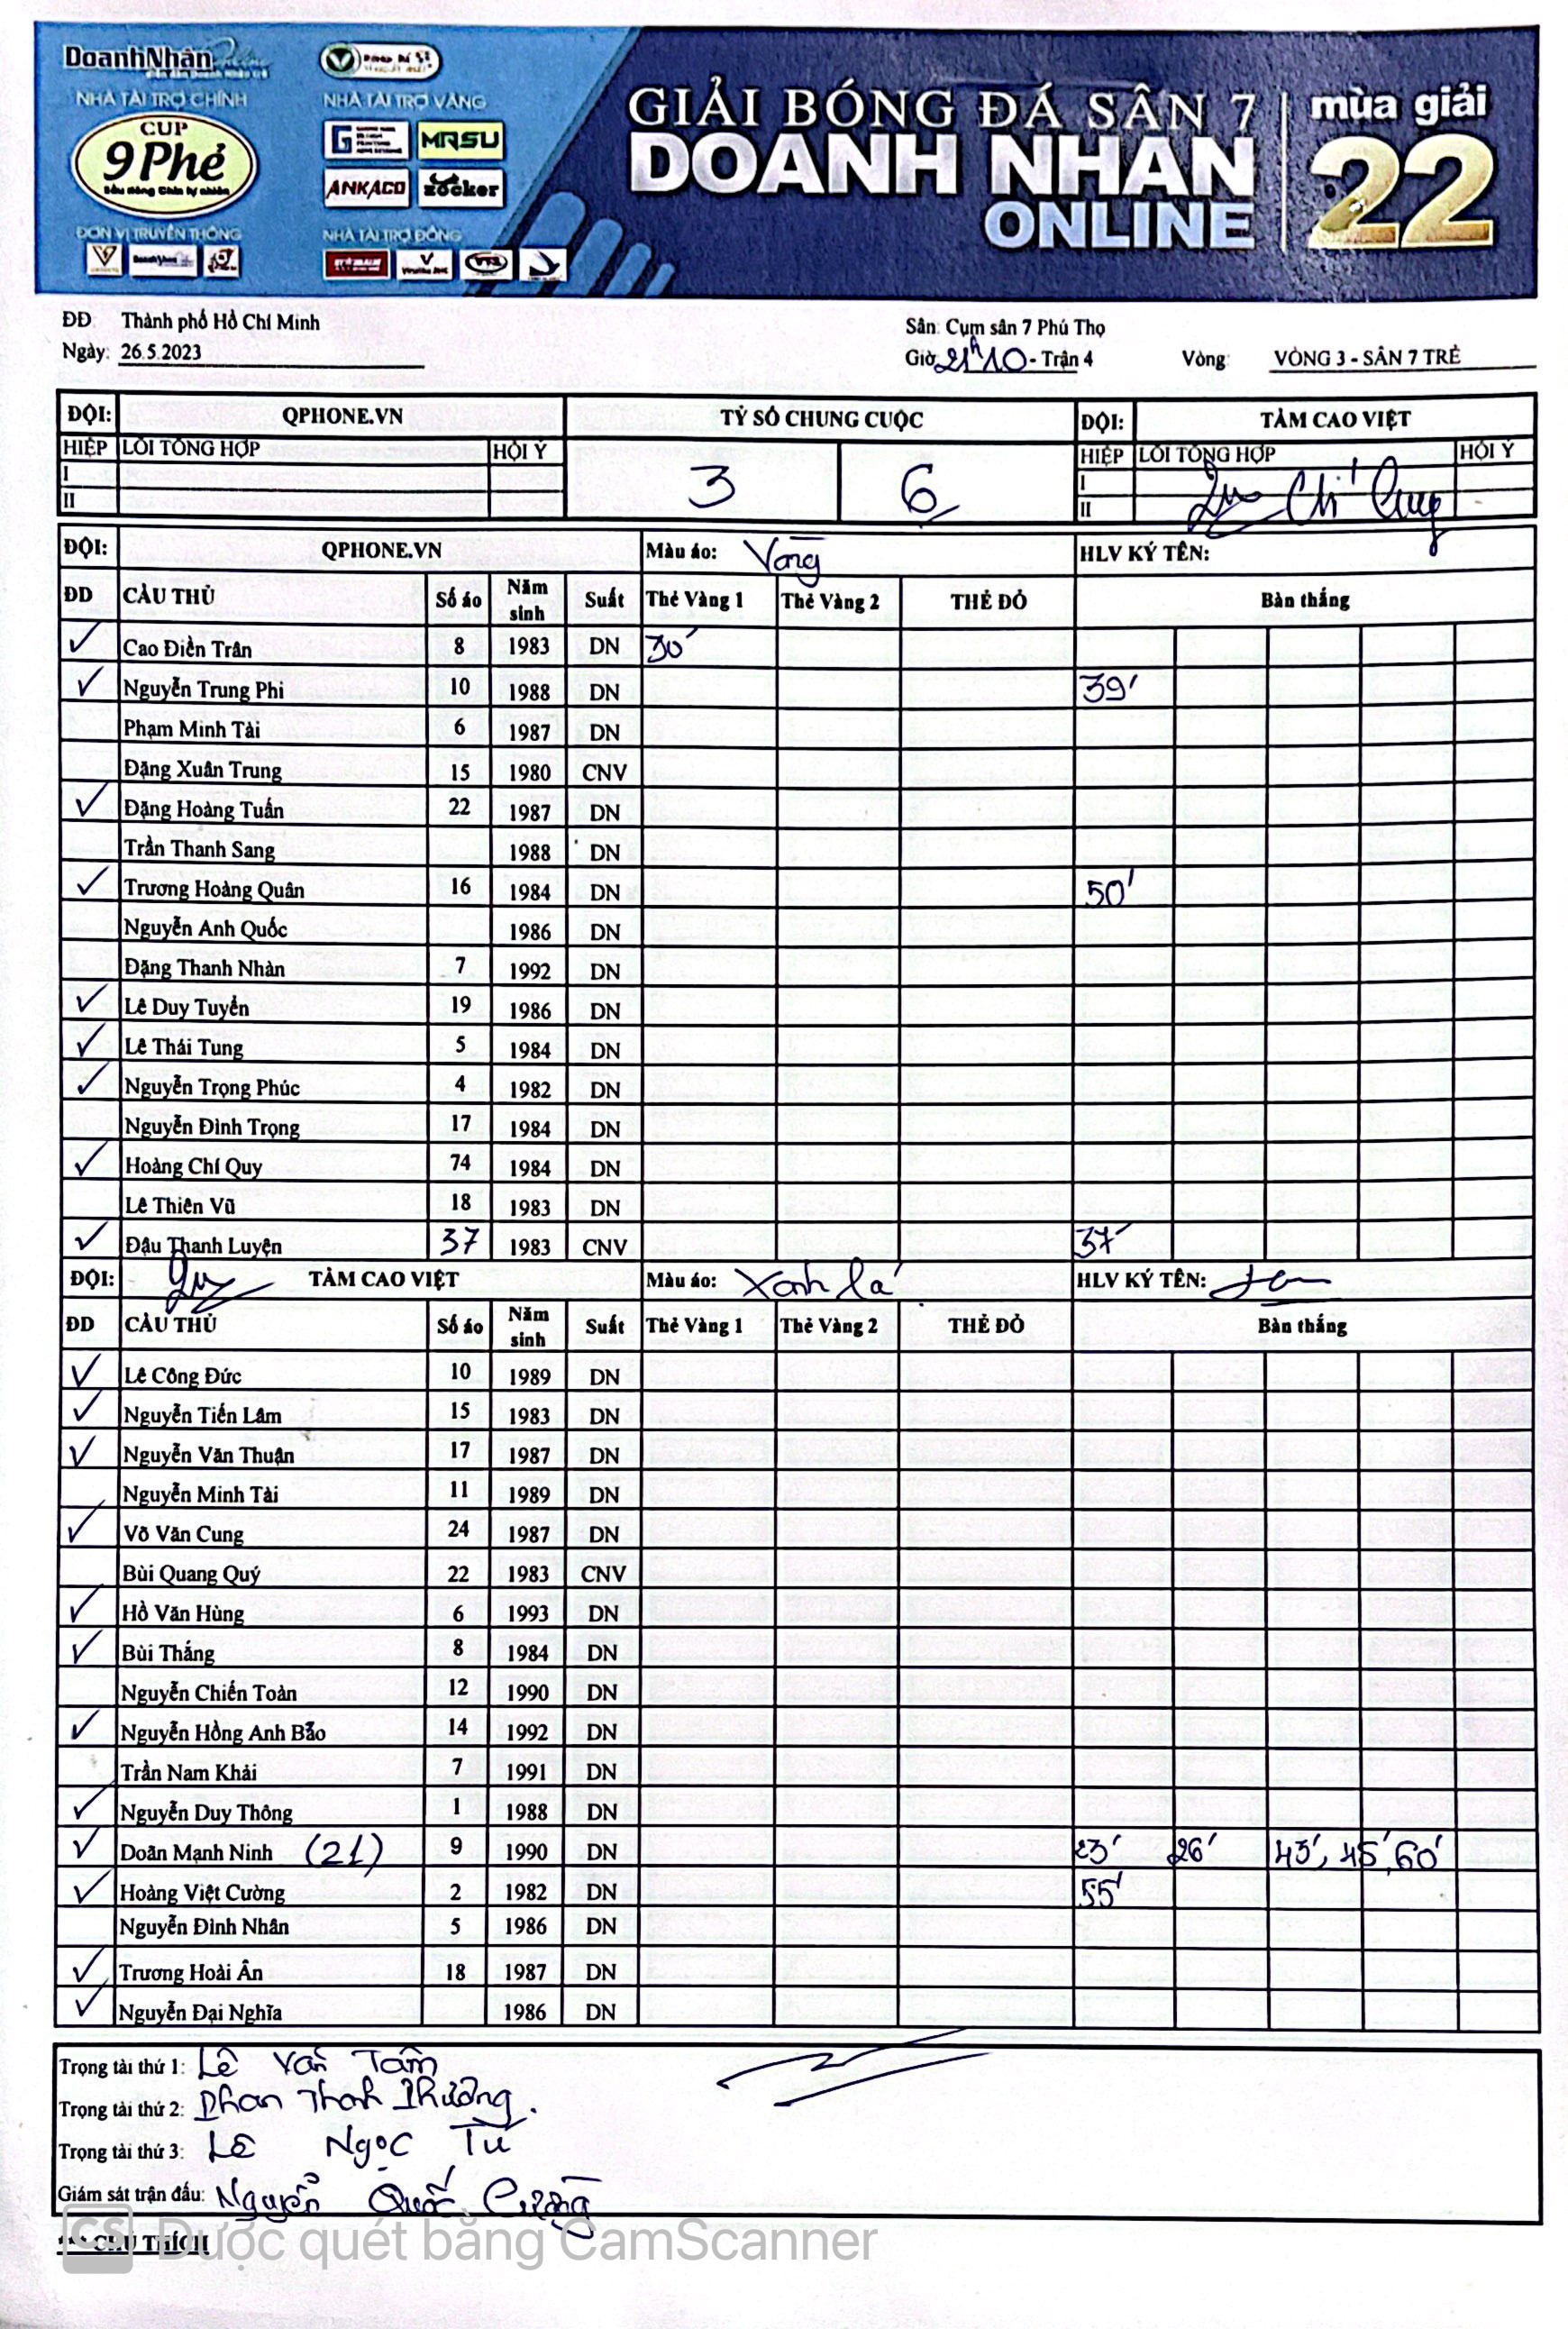 DoanhNhân Online
NHÀ TÀI TRỢ CHÍNH
CUP
9 Phẻ
NHÀ TÀI TRỢ VÀNG
MRSU
ANKACO zocker
ĐƠN VỊ TRUYỀN THÔNG
NHÀ TÀI TRỢ ĐỒNG
GIẢI BÓNG ĐÁ SÂN 7
DOANH NHÂN
ONLINE
mùa giải
22
ĐĐ Thành phố Hồ Chí Minh
Ngày: 26.5.2023
Sân: Cụm sân 7 Phú Thọ
Giờ 21h10 - Trận 4 Vòng: VÒNG 3 - SÂN 7 TRẺ
ĐỘI: QPHONE.VN TỶ SỐ CHUNG CUỘC ĐỘI: TẦM CAO VIỆT
HIỆP LỖI TỔNG HỢP HỘI Ý 3 6 HIỆP LỖI TỔNG HỢP HỘI Ý
I I
II II
ĐỘI: QPHONE.VN Màu áo: Vàng HLV KÝ TÊN:
ĐD CẦU THỦ Số áo Năm sinh Suất Thẻ Vàng 1 Thẻ Vàng 2 THẺ ĐỎ Bàn thắng
✓ Cao Điền Trân 8 1983 DN 30'
✓ Nguyễn Trung Phi 10 1988 DN 39'
Phạm Minh Tài 6 1987 DN
Đặng Xuân Trung 15 1980 CNV
✓ Đặng Hoàng Tuấn 22 1987 DN
Trần Thanh Sang 1988 DN
✓ Trương Hoàng Quân 16 1984 DN 50'
Nguyễn Anh Quốc 1986 DN
Đặng Thanh Nhàn 7 1992 DN
✓ Lê Duy Tuyển 19 1986 DN
✓ Lê Thái Tung 5 1984 DN
✓ Nguyễn Trọng Phúc 4 1982 DN
Nguyễn Đình Trọng 17 1984 DN
✓ Hoàng Chí Quy 74 1984 DN
Lê Thiên Vũ 18 1983 DN
✓ Đậu Thanh Luyện 37 1983 CNV 37'
ĐỘI: TẦM CAO VIỆT Màu áo: Xanh lá HLV KÝ TÊN:
ĐD CẦU THỦ Số áo Năm sinh Suất Thẻ Vàng 1 Thẻ Vàng 2 THẺ ĐỎ Bàn thắng
✓ Lê Công Đức 10 1989 DN
✓ Nguyễn Tiến Lâm 15 1983 DN
✓ Nguyễn Văn Thuận 17 1987 DN
Nguyễn Minh Tài 11 1989 DN
✓ Võ Văn Cung 24 1987 DN
Bùi Quang Quý 22 1983 CNV
✓ Hồ Văn Hùng 6 1993 DN
✓ Bùi Thắng 8 1984 DN
Nguyễn Chiến Toàn 12 1990 DN
✓ Nguyễn Hồng Anh Bảo 14 1992 DN
Trần Nam Khải 7 1991 DN
✓ Nguyễn Duy Thông 1 1988 DN
✓ Doãn Mạnh Ninh (21) 9 1990 DN 23' 26' 43', 45', 60'
✓ Hoàng Việt Cường 2 1982 DN 55'
Nguyễn Đình Nhân 5 1986 DN
✓ Trương Hoài Ân 18 1987 DN
✓ Nguyễn Đại Nghĩa 1986 DN
Trọng tài thứ 1: Lê Văn Tâm
Trọng tài thứ 2: Phan Thanh Phương.
Trọng tài thứ 3: Lê Ngọc Tú
Giám sát trận đấu: Nguyễn Quốc Cường
*** CHÚ THÍCH
CS Được quét bằng CamScanner